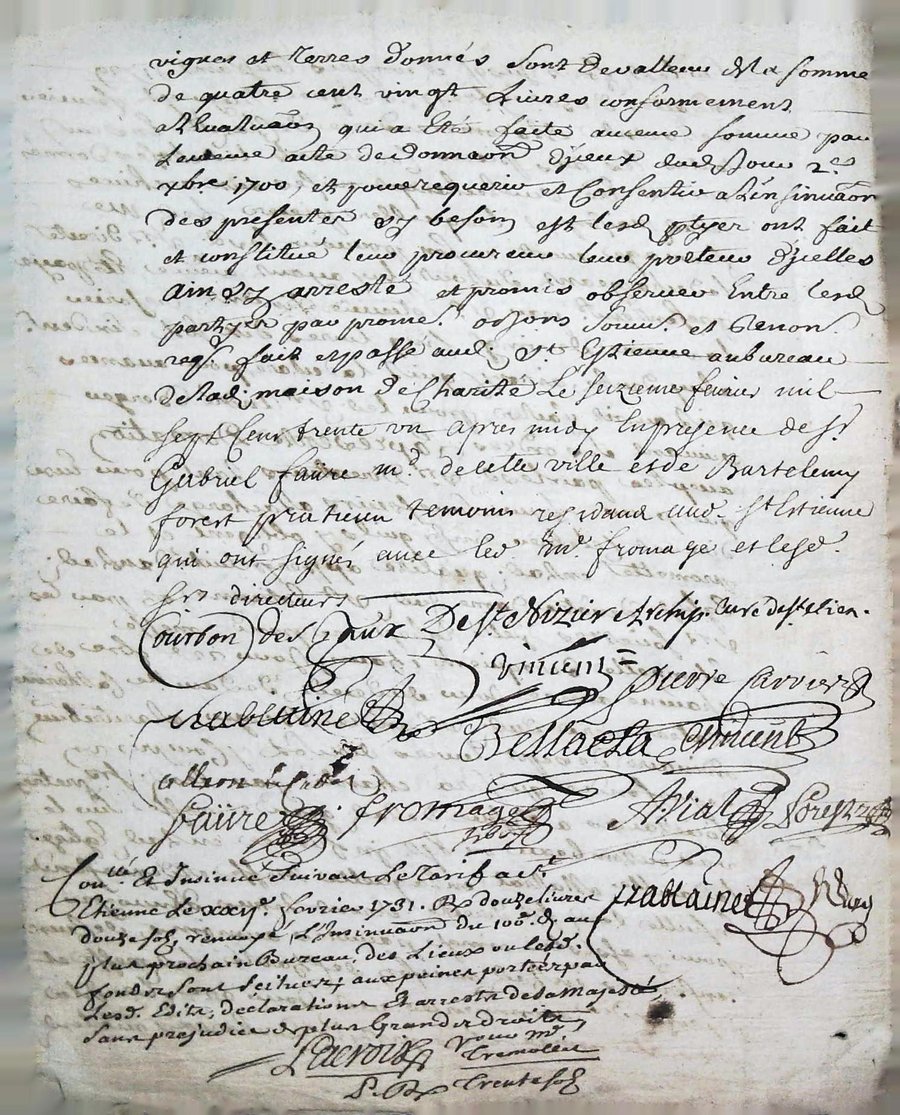 vignes et terres donnés sont de valleur de la somme
de quatre cent vingt Livres conformement
a l'Evaluaon qui a eté faite a mesme somme par
le mesme acte de donnaon d'jceux dud jour 2e
xbre 1700, et pour requerir et Consentir a l'insinuaon
des presentes sy besoin est lesd ptyes ont fait
et constitué leur procureur leur porteur d'jcelles
ainsy arresté et promis observer Entre lesd
partyes par prome. obligons soums. et Renons
reqs. fait et passé aud St Estienne au bureau
de lad. maison de Charité Le seizieme fevrier mil
sept Cent trente un apres midy En presence de Sr
Gabriel faure md. de cette ville et de Bartelemy
forest praticien temoins residans aud. St Estienne
qui ont signés avec led. Me. fromage et lesd.
srs directeurs
Courbon des Gaux De St. Nizier Archip. Curé de St. etien.
vincent Pierre Carrier
prablainé Bellacla Vincent
faure fromage AVial forest
Conllé Et Insinué Suivant Le Tarif a St.
Etienne Le xxije. fevrier 1731. Rx douze livres
douze sols, renvoyé L'Insinuaon du 100e. d. au
plus prochain Bureau, des Lieux ou lesd.
fonds sont scitués; aux peines portées par
Lesd. Edits, déclarations Et arrests de sa Majesté,
sans prejudice de plus Grands droits
prablaine
Lacroix pour Me
Tremolet
P. Rx trente sols